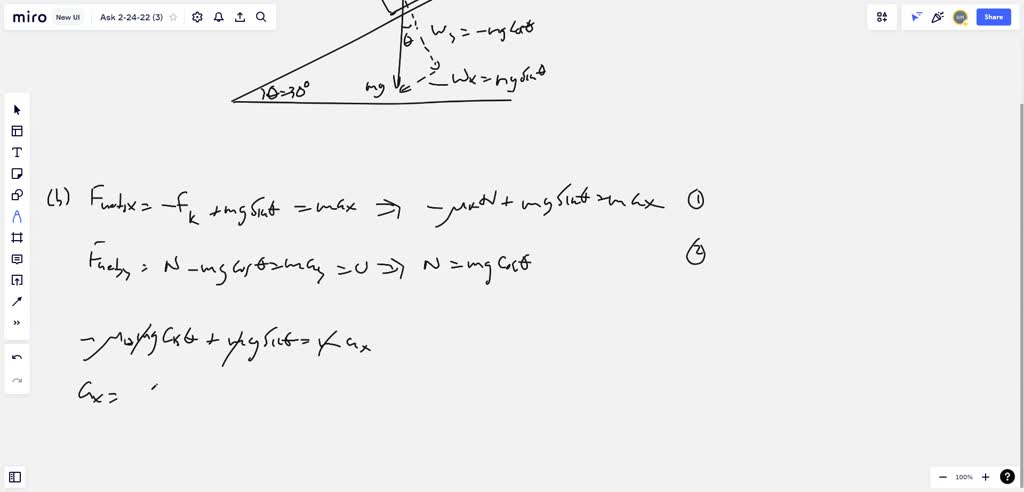 miro New UI Ask 2-24-22 (3) Share
θ W_y = -mg cosθ
θ=30° mg W_x = mg sinθ
(b) F_net,x = -f_k + mg sinθ = ma_x ⇒ -μ_k N + mg sinθ = ma_x ①
F_net,y = N - mg cosθ = ma_y = 0 ⇒ N = mg cosθ ②
-μ_k mg cosθ + mg sinθ = m a_x
a_x =
- 100% + ?